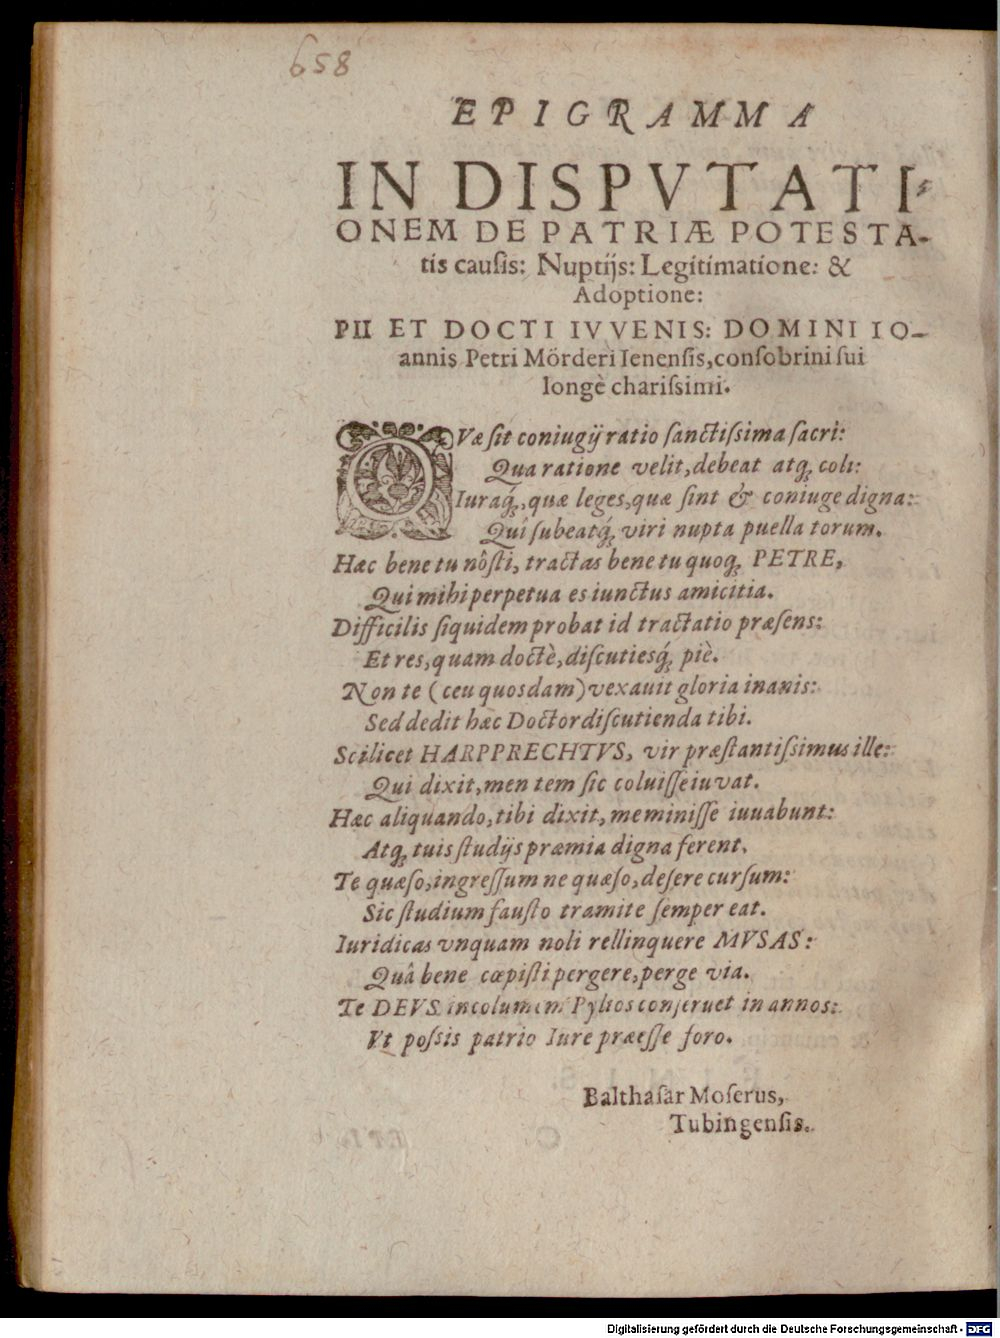 658
EPIGRAMMA
IN DISPVTATI-
ONEM DE PATRIÆ POTESTA-
tis cauſis: Nuptijs: Legitimatione: &
Adoptione:
PII ET DOCTI IVVENIS: DOMINI IO-
annis Petri Mörderi Ienenſis, conſobrini ſui
longè chariſſimi.
QVæ ſit coniugij ratio ſanctiſsima ſacri:
Qua ratione velit, debeat atq́; coli:
Iuraq́;, quæ leges, quæ ſint & coniuge digna:
Quî ſubeatq́; viri nupta puella torum.
Hæc bene tu nôſti, tractas bene tu quoq; PETRE,
Qui mihi perpetua es iunctus amicitia.
Difficilis ſiquidem probat id tractatio præſens:
Et res, quam doctè, diſcutiesq́; piè.
Non te (ceu quosdam) vexauit gloria inanis:
Sed dedit hæc Doctor diſcutienda tibi.
Scilicet HARPPRECHTVS, vir præſtantiſsimus ille:
Qui dixit, men tem ſic coluiſſe iuvat.
Hæc aliquando, tibi dixit, meminiſſe iuuabunt:
Atq; tuis ſtudijs præmia digna ferent.
Te quæſo, ingreſſum ne quæſo, deſere curſum:
Sic ſtudium fauſto tramite ſemper eat.
Iuridicas vnquam noli rellinquere MVSAS:
Quâ bene cœpiſti pergere, perge via.
Te DEVS incolumem Pylios conſeruet in annos:
Vt poſsis patrio Iure præeſſe foro.
Balthaſar Moſerus,
Tubingenſis.
Digitalisierung gefördert durch die Deutsche Forschungsgemeinschaft - DFG